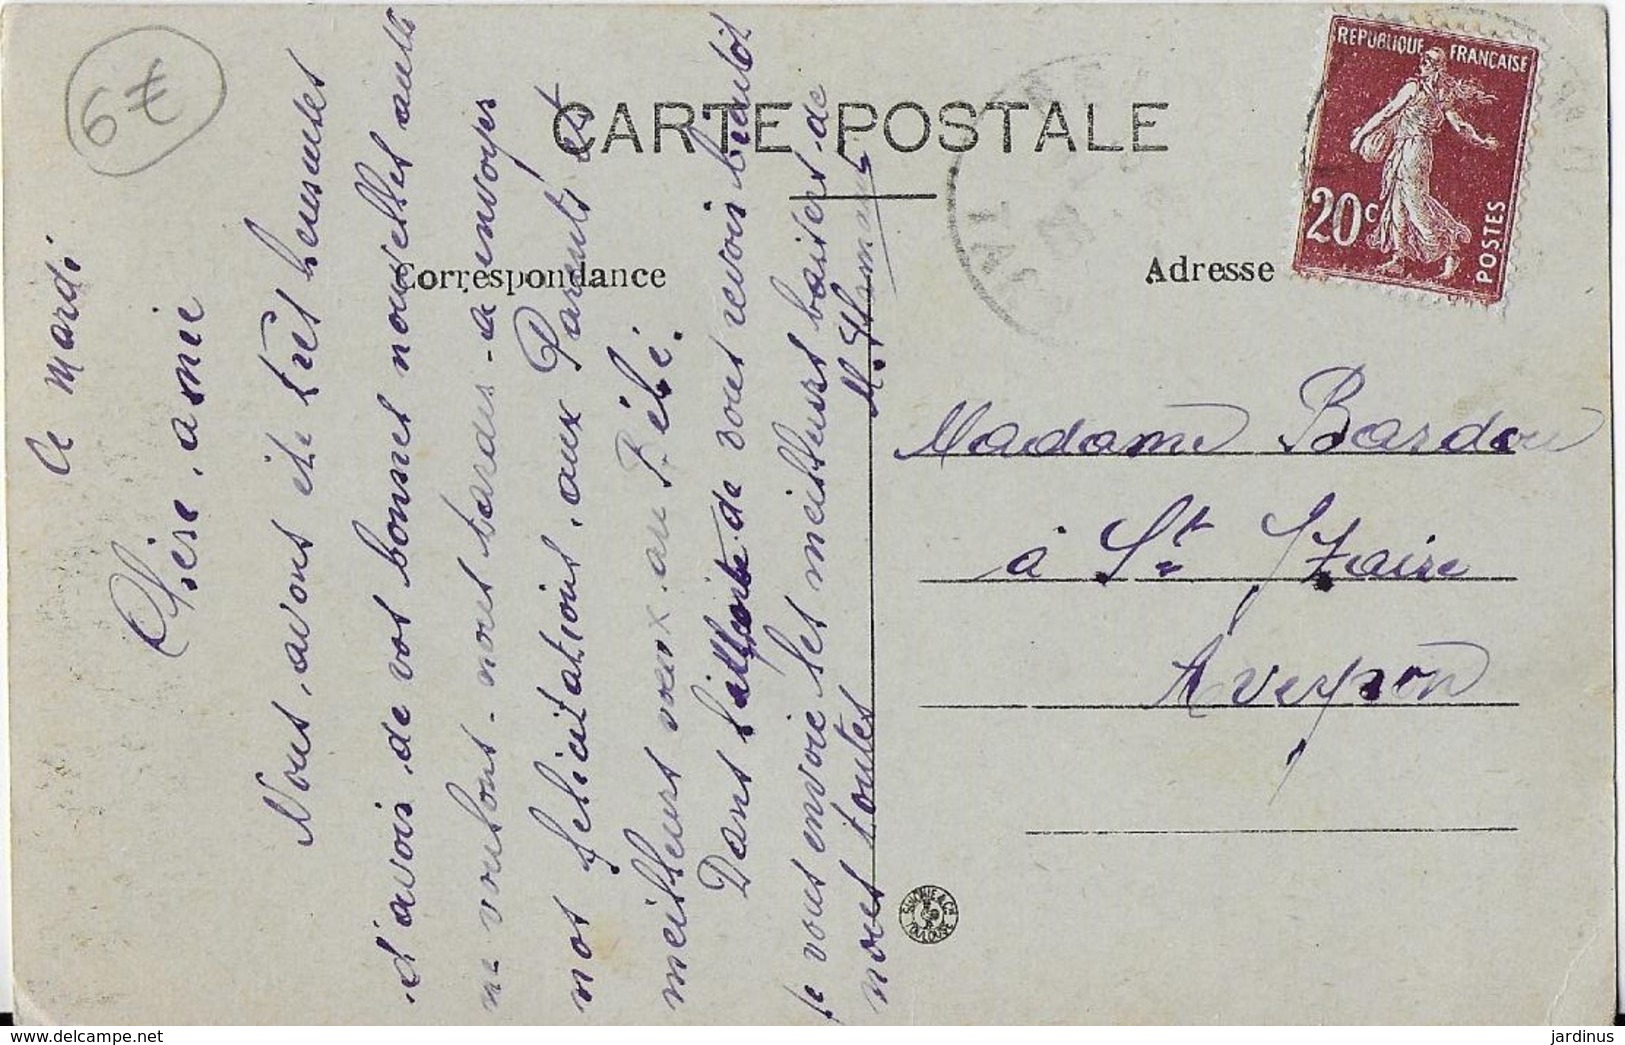 6€
CARTE POSTALE
Correspondance
Adresse
REPUBLIQUE FRANCAISE
20c
POSTES
TARN
Ce Mardi
Chère amie
Nous avons été très heureuses
d'avoir de vos bonnes nouvelles aussi
ne voulons-nous tardes-a envoyer
nos félicitations aux Parents et
meilleurs vœux au Bébé.
Dans l'attente de vous revoir bientot
Je vous envoie les meilleurs baisers de
nous toutes
Madame Bardou
à St Izaire
Aveyron
TOULOUSE
jardinus